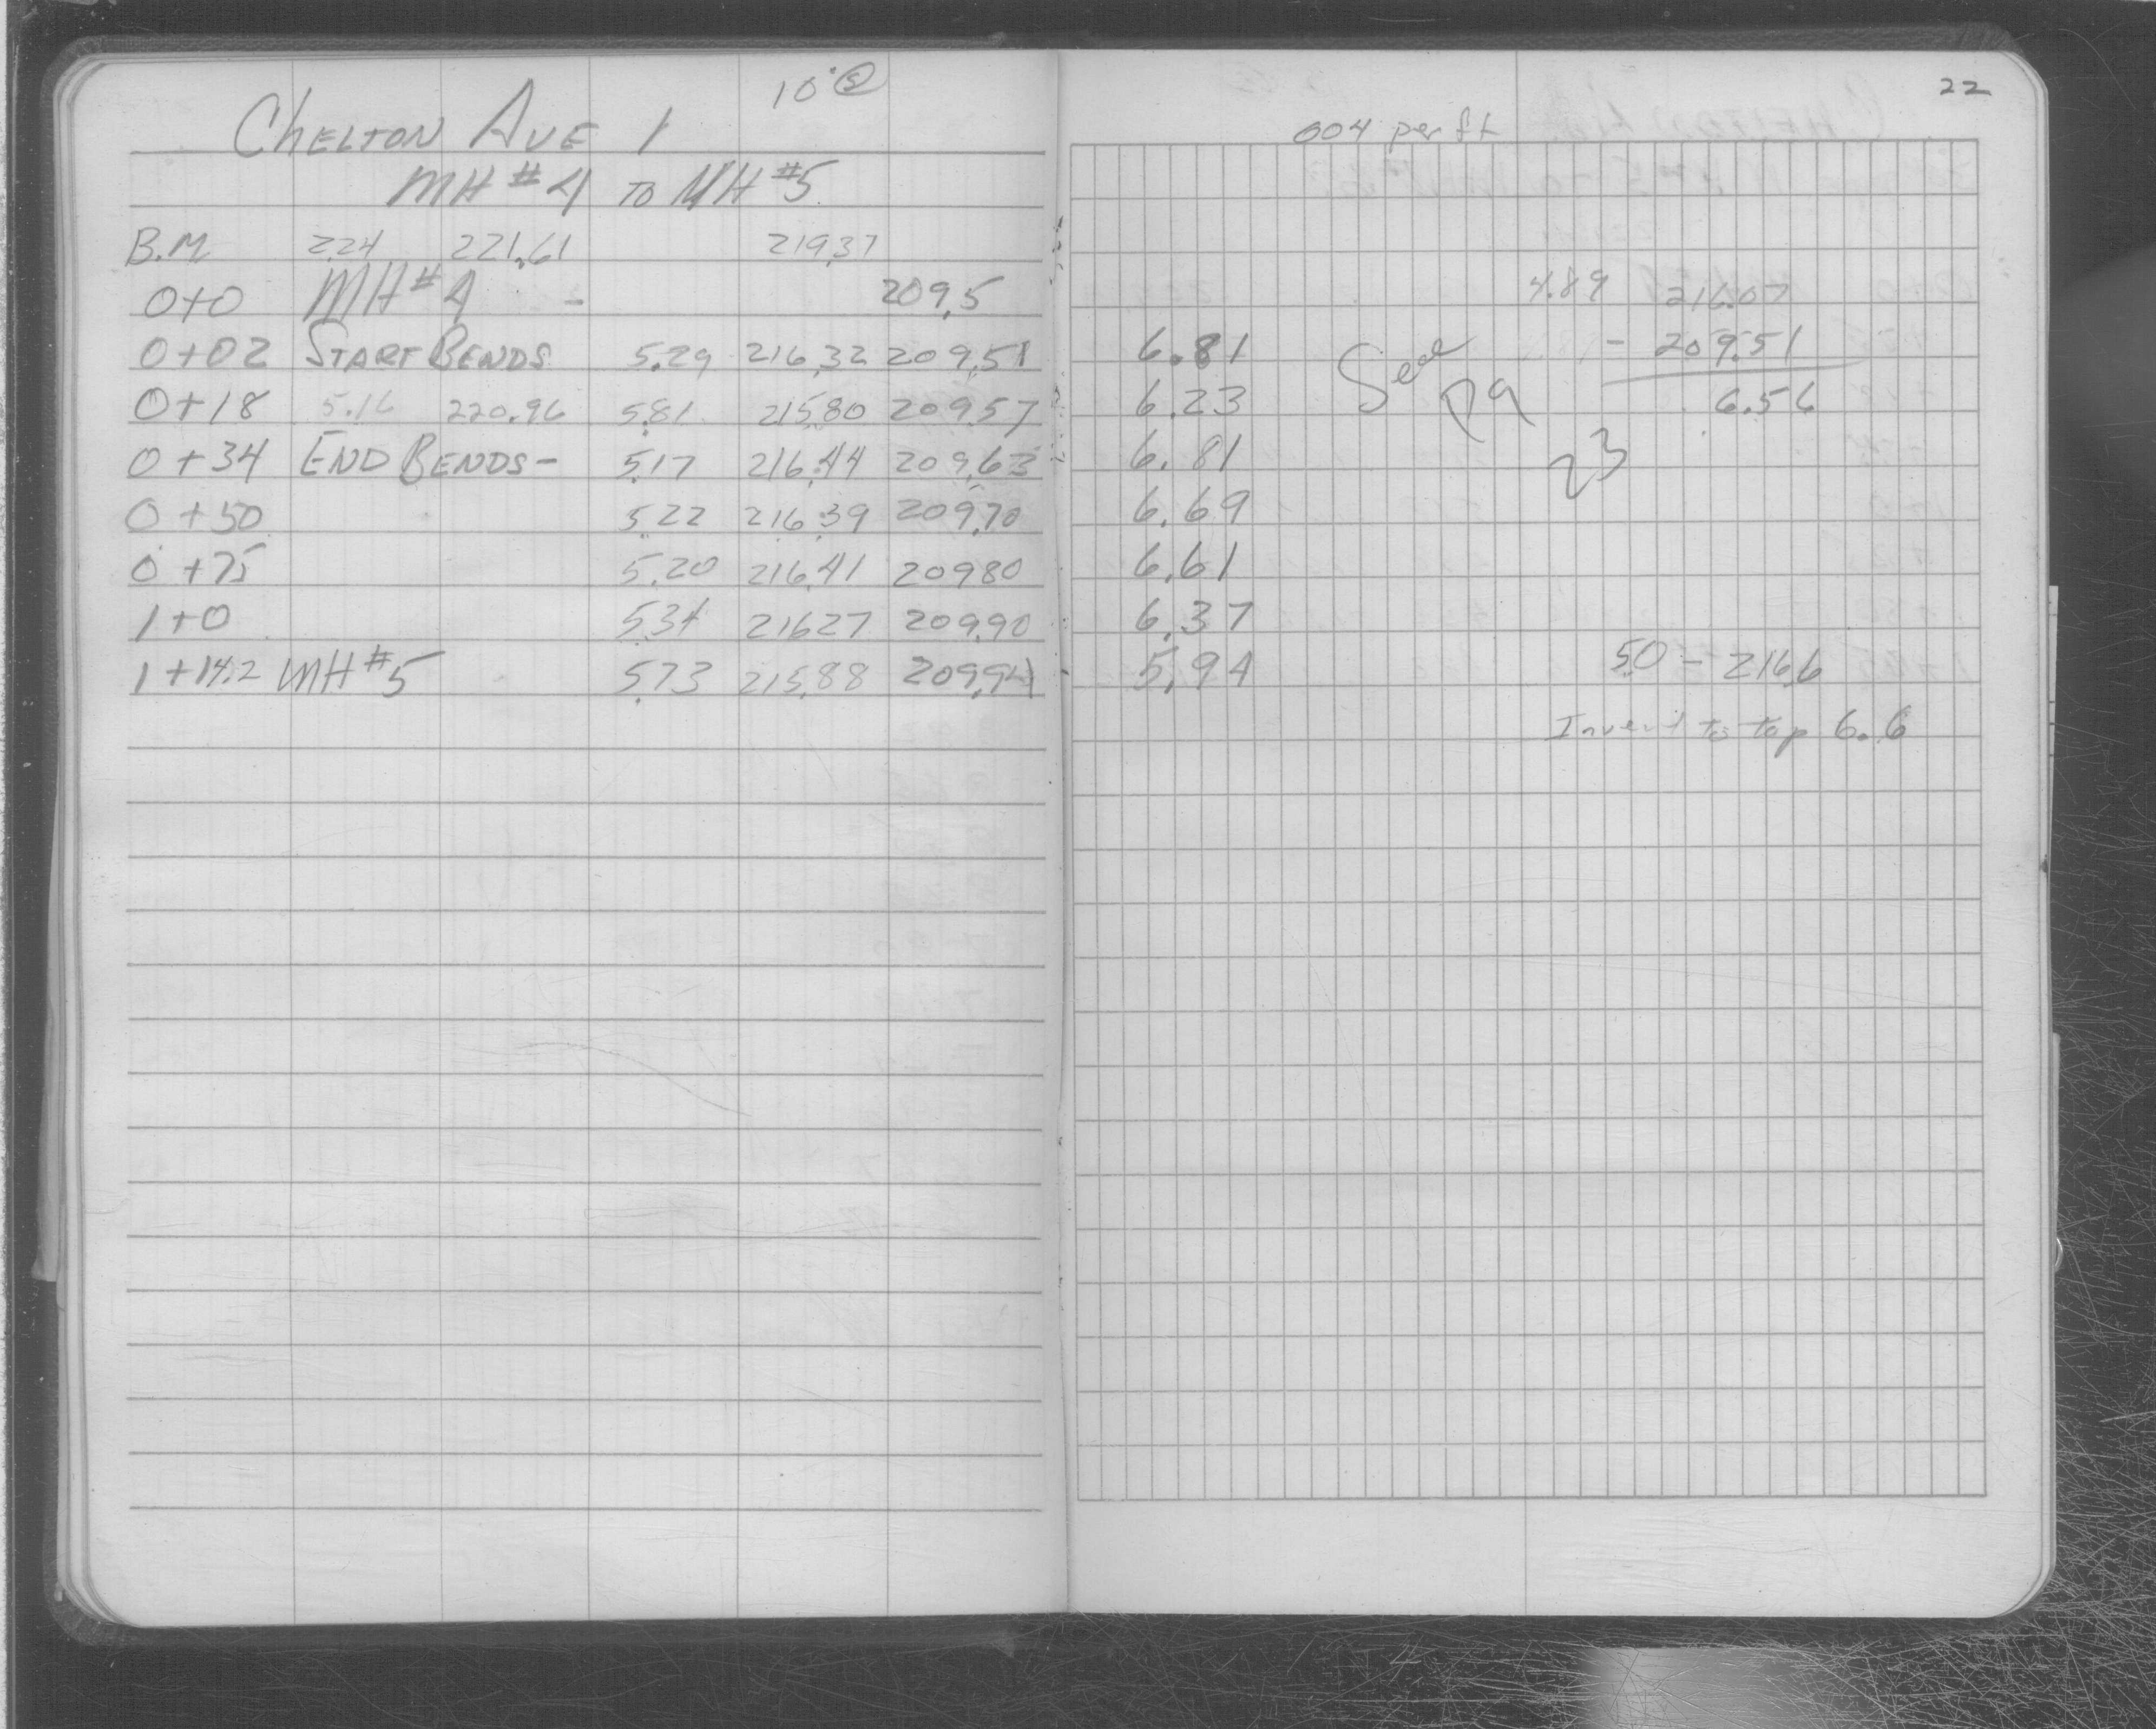 CHELTON AVE 1
MH #4 TO MH #5
B.M 2.24 221.61 219.37
0+0 MH #4 - 209.5
0+02 START BENDS 5.29 216.32 209.51
0+18 5.16 220.96 5.81 215.80 209.57
0+34 END BENDS - 5.17 216.44 209.63
0+50 5.22 216.39 209.70
0+75 5.20 216.41 20980
1+0 5.34 21627 209.90
1+14.2 MH #5 5.73 215.88 209.94
22
004 per ft
4.89 216.07
6.81 - 209.51
6.23 See pg 23 6.56
6.81
6.69
6.61
6.37
5.94 5.0 - 216.6
Invert to top 6.6